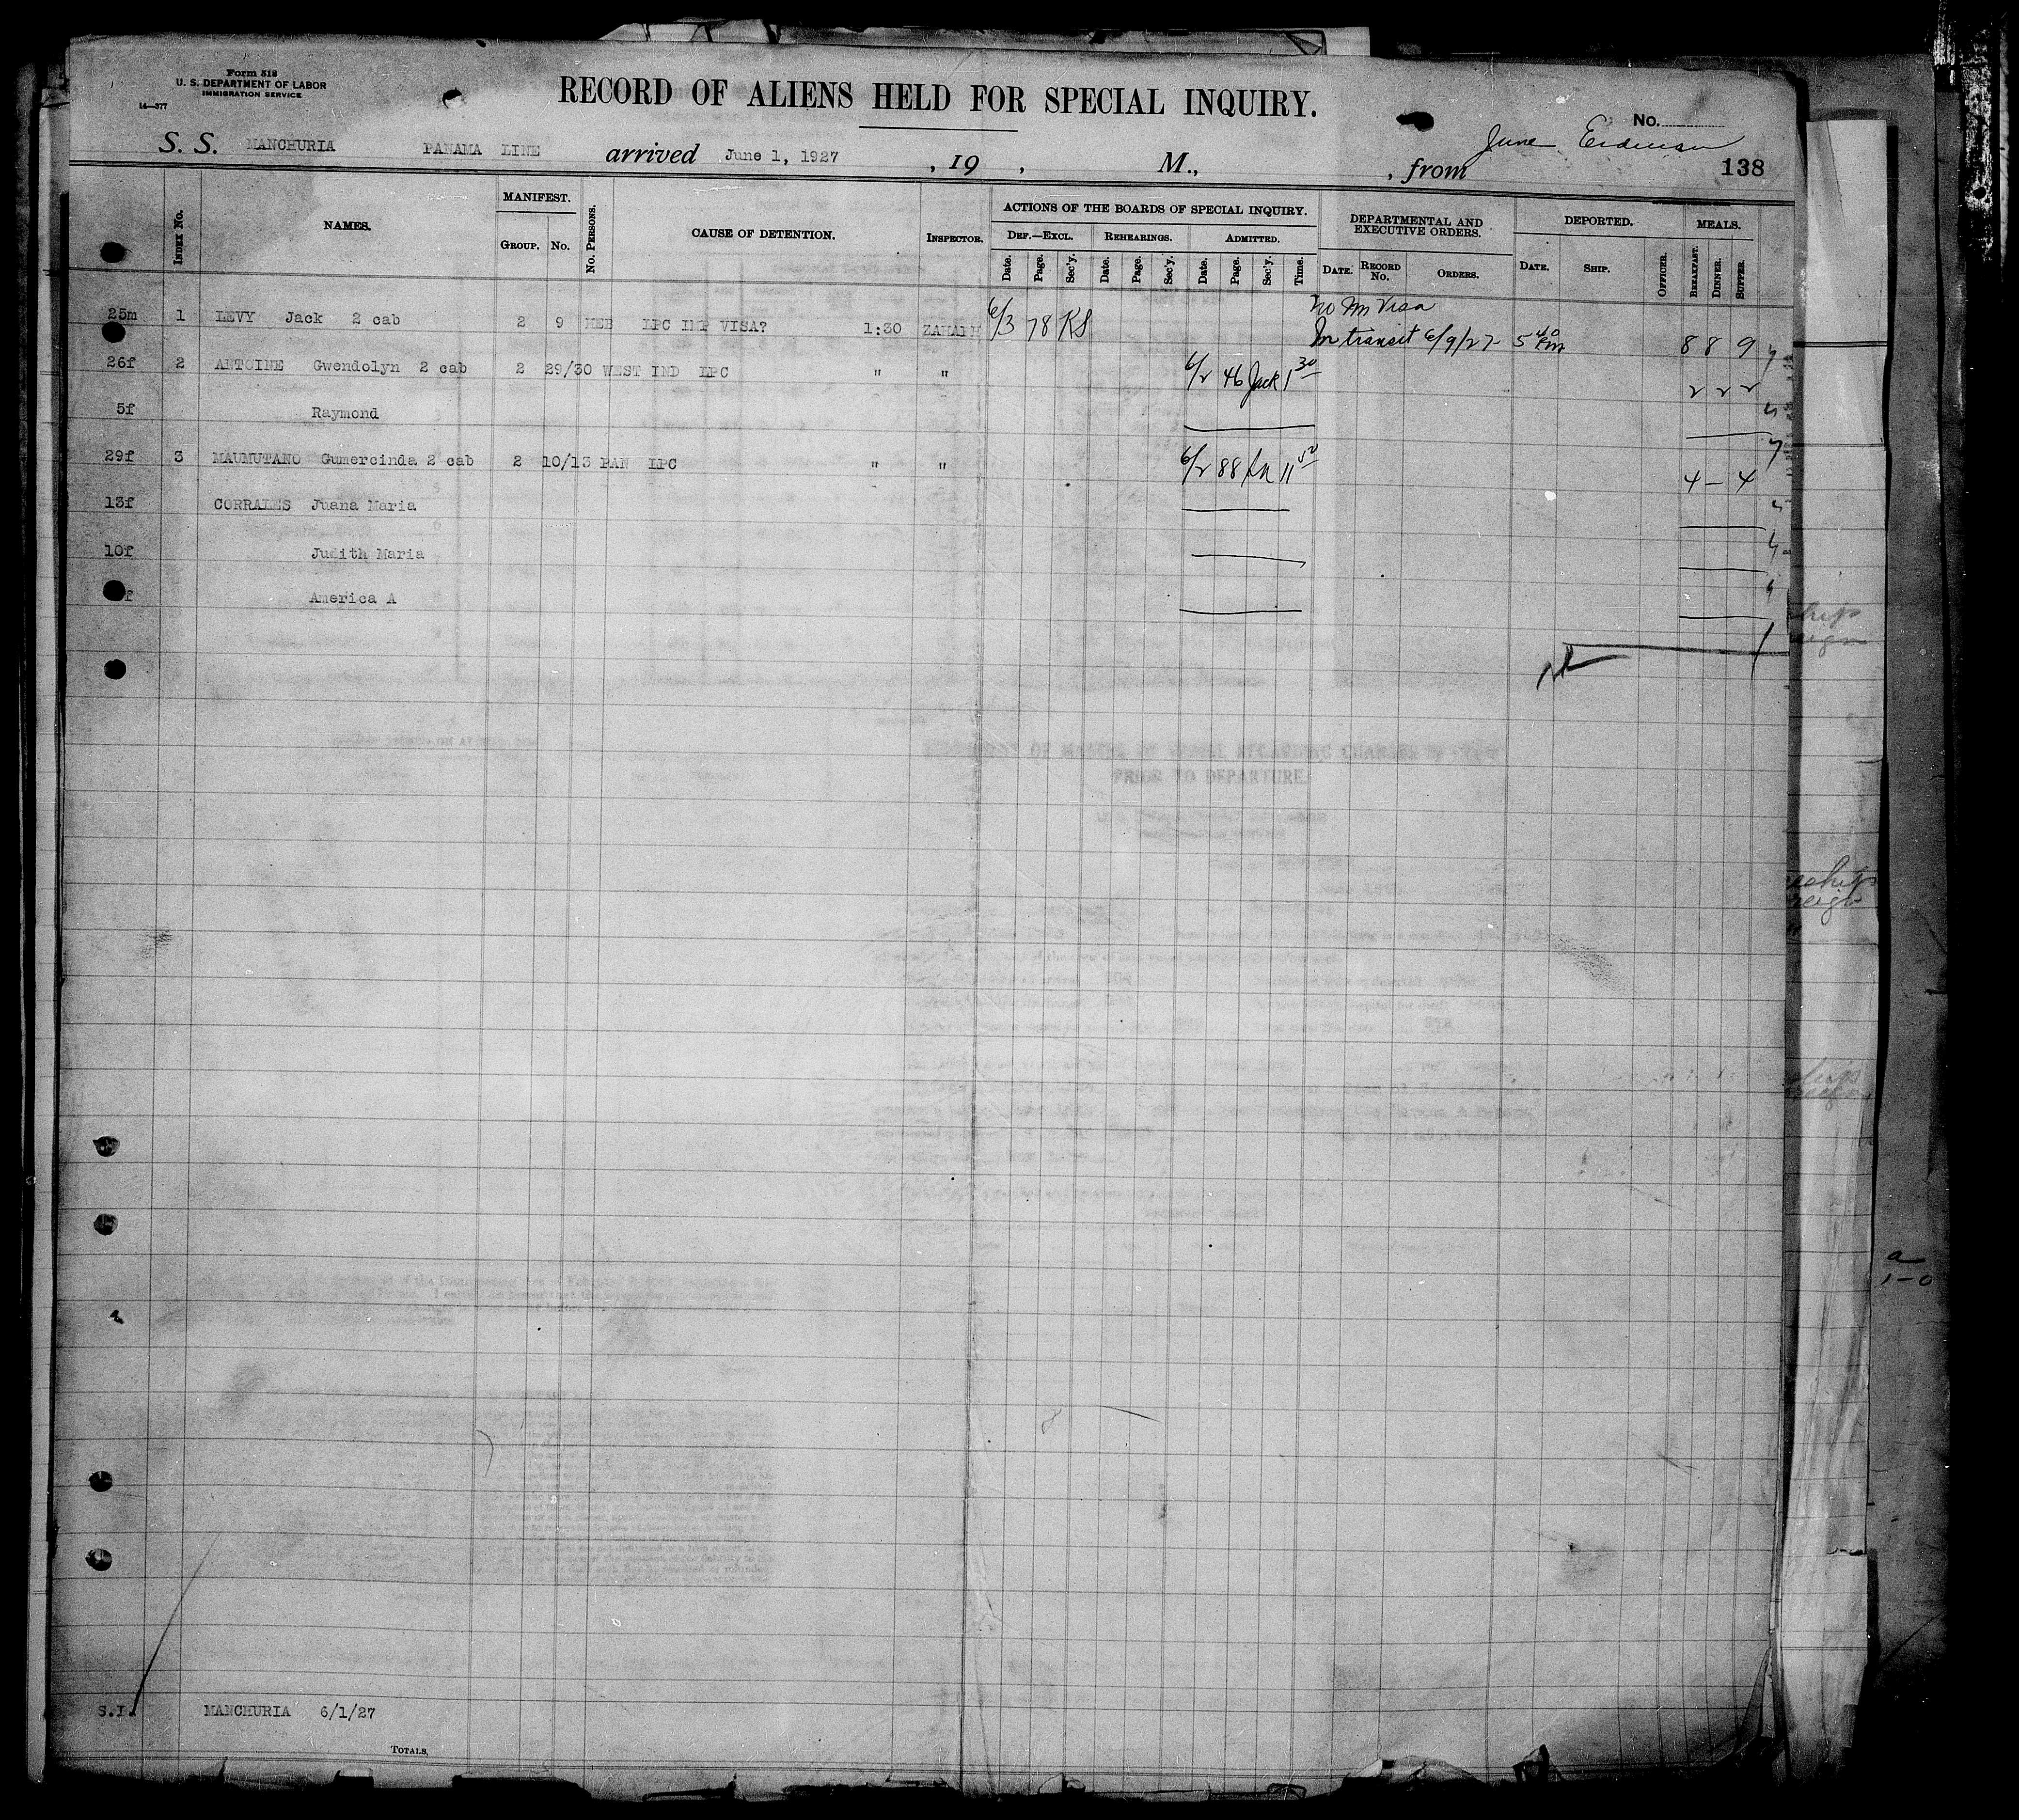 Form 518
U. S. DEPARTMENT OF LABOR
IMMIGRATION SERVICE
14—377
RECORD OF ALIENS HELD FOR SPECIAL INQUIRY.
No.
S. S. MANCHURIA PANAMA LINE arrived June 1, 1927 , 19 , M., , from June 138
INDEX No. NAMES. MANIFEST. GROUP. No. No. PERSONS. CAUSE OF DETENTION. INSPECTOR. ACTIONS OF THE BOARDS OF SPECIAL INQUIRY. DEPARTMENTAL AND EXECUTIVE ORDERS. DEPORTED. MEALS.
DEF.—EXCL. REHEARINGS. ADMITTED.
Date. Page. Sec'y. Date. Page. Sec'y. Date. Page. Sec'y. Time. DATE. RECORD No. ORDERS. DATE. SHIP. OFFICER. BREAKFAST. DINNER. SUPPER.
no Im Visa
25m 1 LEVY Jack 2 cab 2 9 HEB LPC IMP VISA? 1:30 6/3 78 RS In transit 6/9/27 5 40 PM 8 8 9
26f 2 ANTOINE Gwendolyn 2 cab 2 29/30 WEST IND LPC " " 6/2 46 Jack 1 30 2 2 2
5f Raymond
29f 3 MAUMUTANO Gumercinda 2 cab 2 10/13 PAN LPC " " 6/2 88 11 4 — 4
13f CORRALES Juana Maria
10f Judith Maria
f America A
S.I. MANCHURIA 6/1/27
TOTALS,